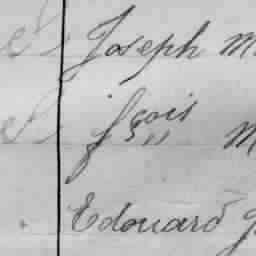 Joseph M
fçois M
Edouard J